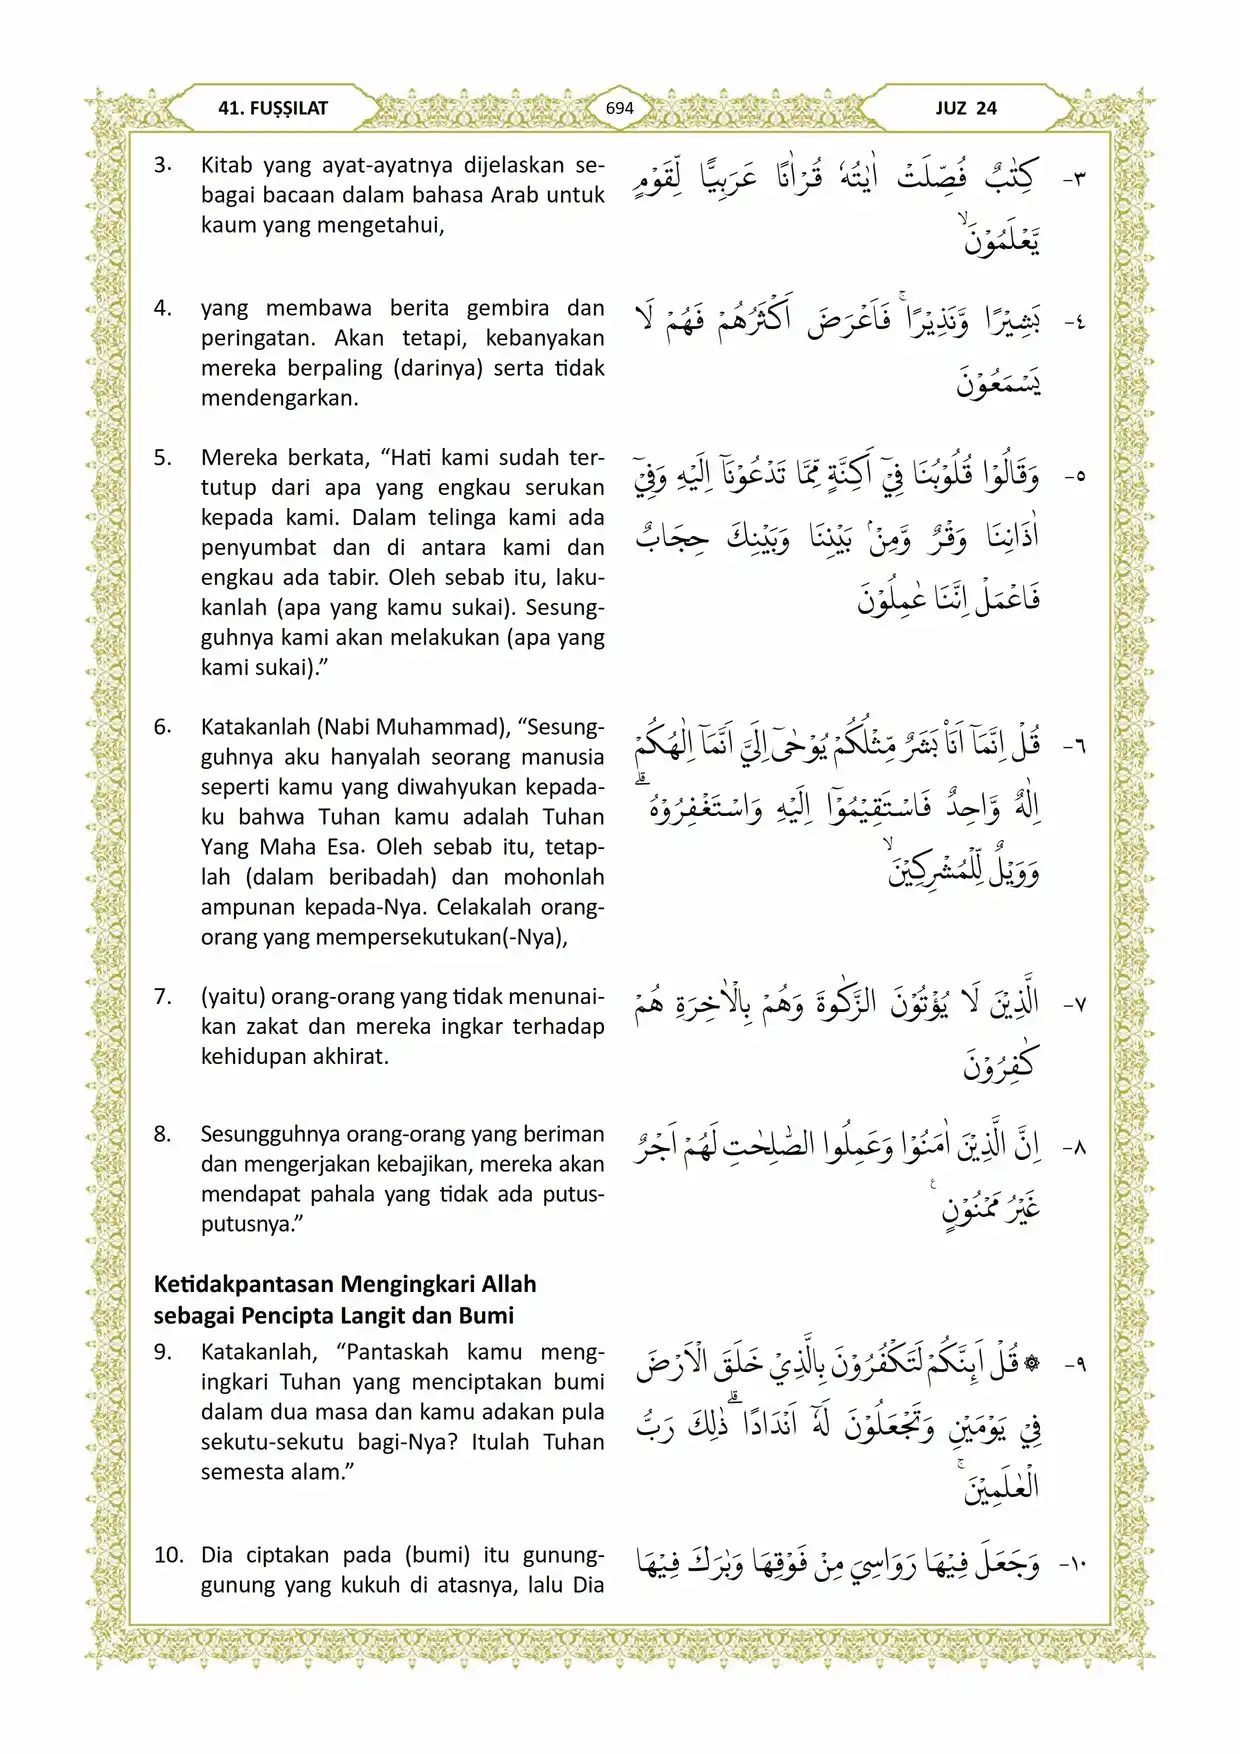 41. FUṢṢILAT
694
JUZ 24
3. Kitab yang ayat-ayatnya dijelaskan se-
bagai bacaan dalam bahasa Arab untuk
kaum yang mengetahui,
٣- كِتٰبٌ فُصِّلَتْ اٰيٰتُهٗ قُرْاٰنًا عَرَبِيًّا لِّقَوْمٍ
يَّعْلَمُوْنَۙ
4. yang membawa berita gembira dan
peringatan. Akan tetapi, kebanyakan
mereka berpaling (darinya) serta tidak
mendengarkan.
٤- بَشِيْرًا وَّنَذِيْرًاۚ فَاَعْرَضَ اَكْثَرُهُمْ فَهُمْ لَا
يَسْمَعُوْنَ
5. Mereka berkata, “Hati kami sudah ter-
tutup dari apa yang engkau serukan
kepada kami. Dalam telinga kami ada
penyumbat dan di antara kami dan
engkau ada tabir. Oleh sebab itu, laku-
kanlah (apa yang kamu sukai). Sesung-
guhnya kami akan melakukan (apa yang
kami sukai).”
٥- وَقَالُوْا قُلُوْبُنَا فِيْٓ اَكِنَّةٍ مِّمَّا تَدْعُوْنَآ اِلَيْهِ وَفِيْٓ
اٰذَانِنَا وَقْرٌ وَّمِنْۢ بَيْنِنَا وَبَيْنِكَ حِجَابٌ
فَاعْمَلْ اِنَّنَا عٰمِلُوْنَ
6. Katakanlah (Nabi Muhammad), “Sesung-
guhnya aku hanyalah seorang manusia
seperti kamu yang diwahyukan kepada-
ku bahwa Tuhan kamu adalah Tuhan
Yang Maha Esa. Oleh sebab itu, tetap-
lah (dalam beribadah) dan mohonlah
ampunan kepada-Nya. Celakalah orang-
orang yang mempersekutukan(-Nya),
٦- قُلْ اِنَّمَآ اَنَا۠ بَشَرٌ مِّثْلُكُمْ يُوْحٰىٓ اِلَيَّ اَنَّمَآ اِلٰهُكُمْ
اِلٰهٌ وَّاحِدٌ فَاسْتَقِيْمُوْٓا اِلَيْهِ وَاسْتَغْفِرُوْهُۗ
وَوَيْلٌ لِّلْمُشْرِكِيْنَۙ
7. (yaitu) orang-orang yang tidak menunai-
kan zakat dan mereka ingkar terhadap
kehidupan akhirat.
٧- الَّذِيْنَ لَا يُؤْتُوْنَ الزَّكٰوةَ وَهُمْ بِالْاٰخِرَةِ هُمْ
كٰفِرُوْنَ
8. Sesungguhnya orang-orang yang beriman
dan mengerjakan kebajikan, mereka akan
mendapat pahala yang tidak ada putus-
putusnya.”
٨- اِنَّ الَّذِيْنَ اٰمَنُوْا وَعَمِلُوا الصّٰلِحٰتِ لَهُمْ اَجْرٌ
غَيْرُ مَمْنُوْنٍ ࣖ
Ketidakpantasan Mengingkari Allah
sebagai Pencipta Langit dan Bumi
9. Katakanlah, “Pantaskah kamu meng-
ingkari Tuhan yang menciptakan bumi
dalam dua masa dan kamu adakan pula
sekutu-sekutu bagi-Nya? Itulah Tuhan
semesta alam.”
٩- ۞ قُلْ اَىِٕنَّكُمْ لَتَكْفُرُوْنَ بِالَّذِيْ خَلَقَ الْاَرْضَ
فِيْ يَوْمَيْنِ وَتَجْعَلُوْنَ لَهٗٓ اَنْدَادًاۗ ذٰلِكَ رَبُّ
الْعٰلَمِيْنَۚ
10. Dia ciptakan pada (bumi) itu gunung-
gunung yang kukuh di atasnya, lalu Dia
١٠- وَجَعَلَ فِيْهَا رَوَاسِيَ مِنْ فَوْقِهَا وَبٰرَكَ فِيْهَا